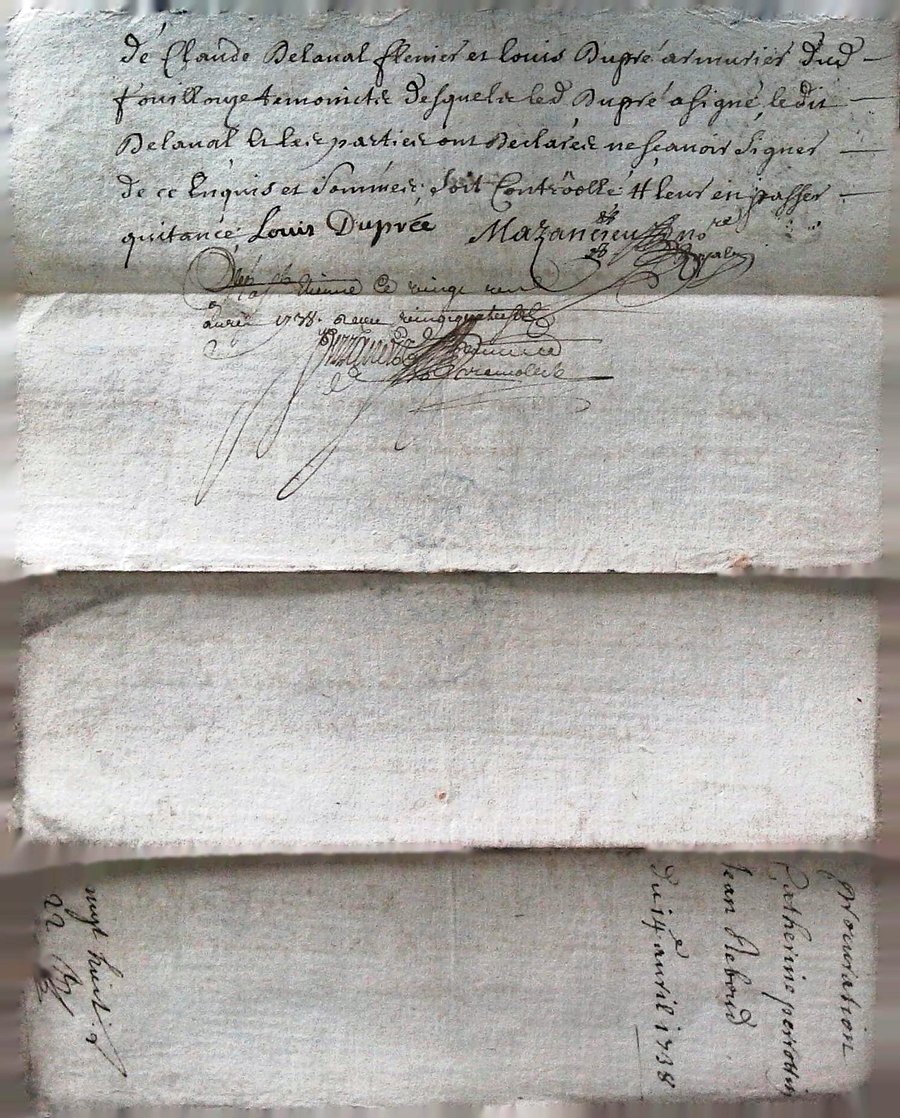 de Claude Delaval flenier et louis Dupré armurier dud
fouillouze temointz desquels led Dupré a signé, ledit
Delaval et les parties ont declarés ne scavoir signer
de ce Enquis et sommés, soit Controollé & leur en passer
quitance Louis Duprée Mazancieu no.re
royal
a St Etienne ce vingt
avril 1738. Receu
Procuration
Catherine perrotin
Jean Reboud
du 19e avril 1738
vingt huit
22